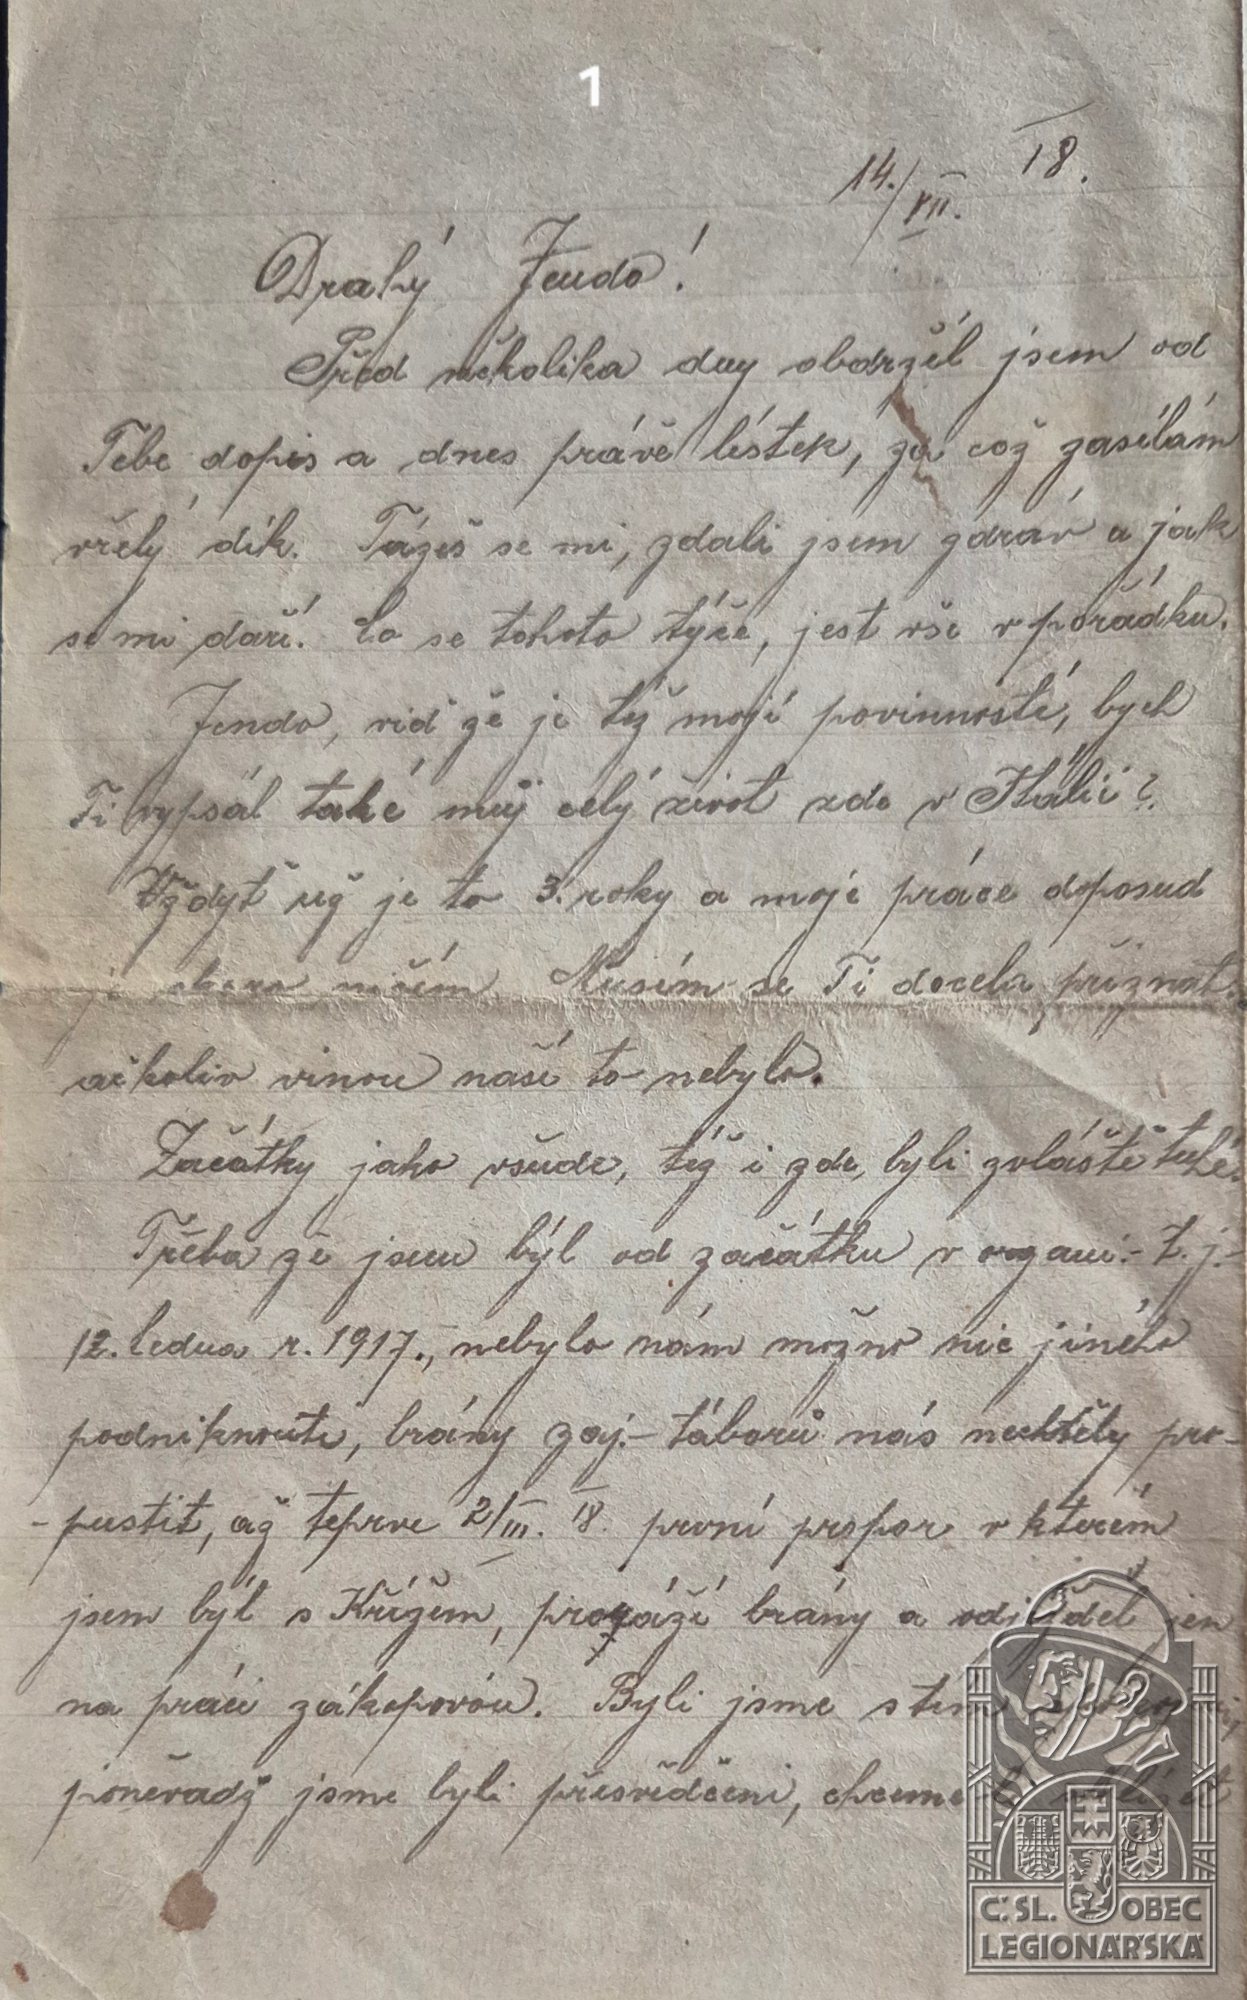 1
14./VII. 18.
Drahý Jendo!
Před několika dny obdržél jsem od
Tebe dopis a dnes právě lístek, za což zasílám
vřelý dík. Tážeš se mi, zdali jsem zdráv a jak
se mi daří. Co se tohoto týče, jest vše v pořádku.
Jendo, viď že je též mojí povinností, bych
Ti vypsál také můj celý život zde v Itálii?
Vždyť už je to 3. roky a moje práce doposud
je skoro ničím. Musím se Ti docela přiznat.
ačkoliv vinou naší to nebylo.
Začátky jako všude, též i zde, byli zvláště tuhé.
Třeba že jsem býl od začátku v organi.- t.j.-
12. ledna r. 1917., nebylo nám možno nic jiného
podniknouti, brány zaj.- táborů nás nechtěly pro-
- pustit, až teprve 2/III. 18. první prapor v kterém
jsem býl s Křížem, proráží brány a odjížděl jen
na práci zákopovou. Byli jsme s tím
poněvadž jsme byli přesvědčeni, chceme-li
Č.SL. OBEC
LEGIONÁŘSKÁ